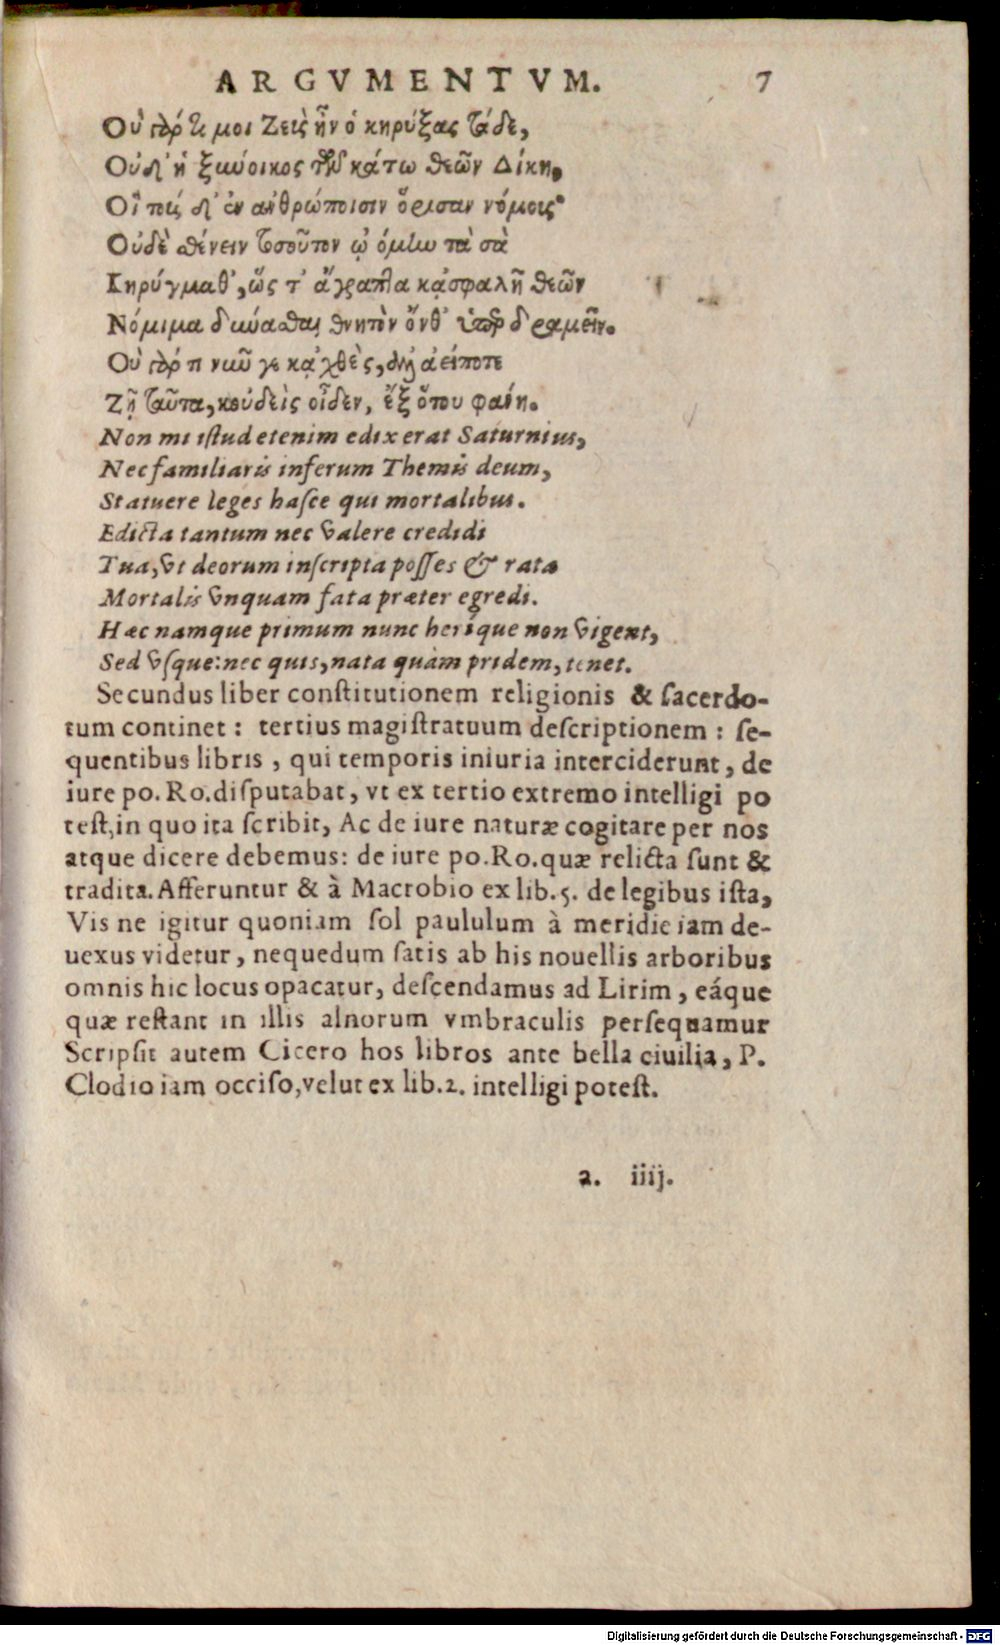 ARGVMENTVM. 7
Οὐ γάρ τι μοι Ζεὺς ἦν ὁ κηρύξας τάδε,
Οὐδ' ἡ ξωύοικος τῶν κάτω θεῶν Δίκη,
Οἳ τούς δ' ἐν ἀνθρώποισιν ὥρισαν νόμους·
Οὐδὲ σθένειν τοσοῦτον ᾠόμην τὰ σὰ
Κηρύγμαθ', ὥς τ' ἄγραπτα κᾀσφαλῆ θεῶν
Νόμιμα δύνασθαι θνητὸν ὄνθ' ὑπερδραμεῖν.
Οὐ γάρ τι νῦν γε κᾀχθὲς, ἀλλ' ἀείποτε
Ζῇ ταῦτα, κοὐδεὶς οἶδεν, ἐξ ὅτου φαίη.
Non mi istud etenim edixerat Saturnius,
Nec familiaris inferum Themis deum,
Statuere leges hasce qui mortalibus.
Edicta tantum nec valere credidi
Tua, vt deorum inscripta posses & rata
Mortalis vnquam fata præter egredi.
Hæc namque primum nunc heríque non vigent,
Sed vsque: nec quis, nata quàm pridem, tenet.
Secundus liber constitutionem religionis & sacerdo-
tum continet: tertius magistratuum descriptionem: se-
quentibus libris, qui temporis iniuria interciderunt, de
iure po. Ro. disputabat, vt ex tertio extremo intelligi po
test, in quo ita scribit, Ac de iure naturæ cogitare per nos
atque dicere debemus: de iure po. Ro. quæ relicta sunt &
tradita. Afferuntur & à Macrobio ex lib. 5. de legibus ista,
Vis ne igitur quoniam sol paululum à meridie iam de-
uexus videtur, nequedum satis ab his nouellis arboribus
omnis hic locus opacatur, descendamus ad Lirim, eáque
quæ restant in illis alnorum vmbraculis persequamur
Scripsit autem Cicero hos libros ante bella ciuilia, P.
Clodio iam occiso, velut ex lib. 2. intelligi potest.
a. iiij.
Digitalisierung gefördert durch die Deutsche Forschungsgemeinschaft - DFG